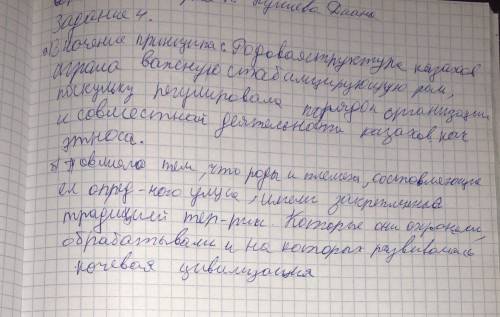 Кушева Диана
Задание 4.
а) Значение принципа: Родовая структура казахов
играла важную стабилизирующую роль,
поскулку регулировала порядок организации
и совместной деятельности казахов как
этноса.
б) Повлияло тем, что роды и племена, состовляющие
ел опред-ного улуса, имели закрепленные
традицией тер-рии. Которые они охраняли,
обрабатывали и на которых развивалась
кочевая цивилизация